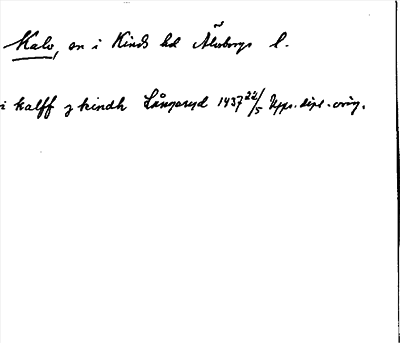 Kalv, sn i Kinds hd Älvsborgs l.
i kalff j kindh Långaryd 1437 22/5 Upps. dipl. orig.